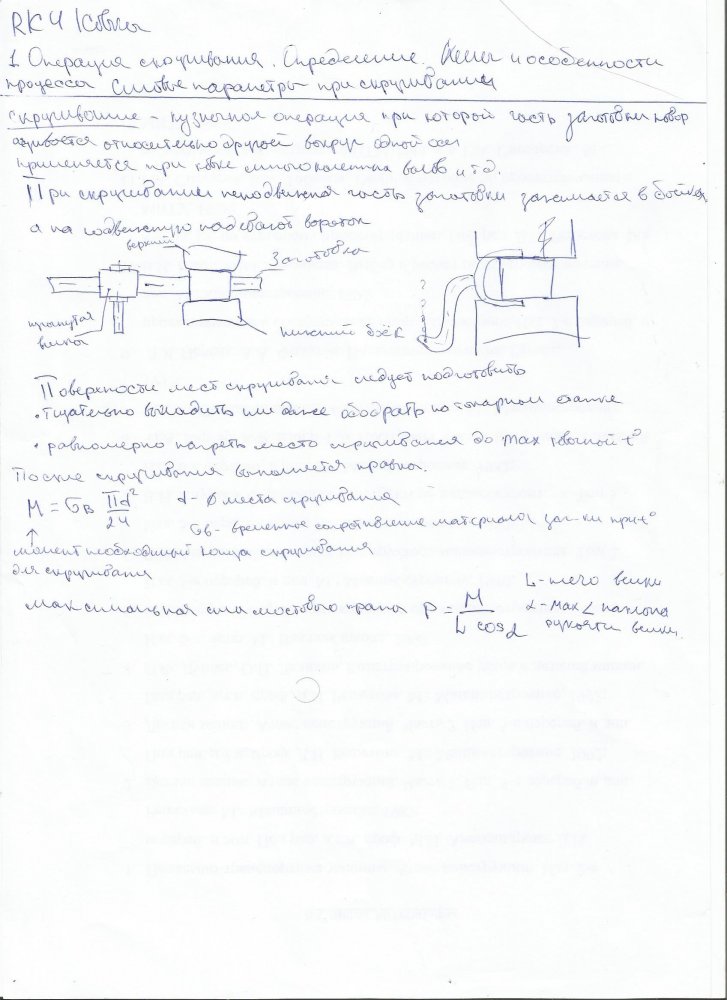 RK4 Ковка
1. Операция скручивания. Определение. и особенности
процесса Силовые параметры при скручивании
скручивание - кузнечная операция при которой часть заготовки повор
ачивается относительно другой вокруг одной оси
применяется при ковке многоколенных валов и т.д.
При скручивании неподвижная часть заготовки зажимается в бойках
а на подвижную надевают вороток
верхний
Заготовка
вилка
нижний боёк
Поверхности мест скручивания следует подготовить
• тщательно выгладить или даже ободрать на токарном станке
• равномерно нагреть место скручивания до max ковочной t°
После скручивания выполняется правка.
M = σв πd² / 24 d - ∅ места скручивания
σв - временное сопротивление материала заг-ки при t°
конца скручивания
момент необходимый
для скручивания
максимальная сила мостового крана P = M / L cosα
L - плечо вилки
α - max ∠ наклона
рукояти вилки.